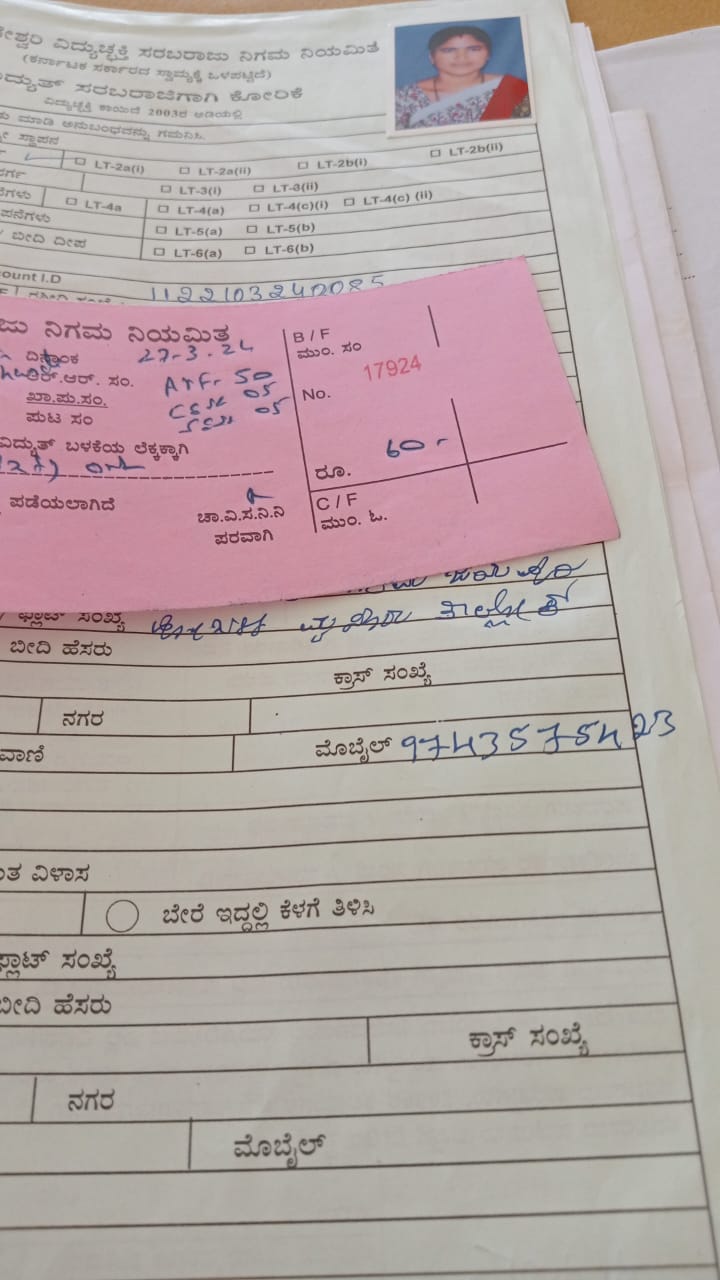 ೇಶ್ವರಿ ವಿದ್ಯುಚ್ಛಕ್ತಿ ಸರಬರಾಜು ನಿಗಮ ನಿಯಮಿತ
(ಕರ್ನಾಟಕ ಸರ್ಕಾರದ ಸ್ವಾಮ್ಯಕ್ಕೆ ಒಳಪಟ್ಟಿದೆ)
ದ್ಯುತ್ ಸರಬರಾಜಿಗಾಗಿ ಕೋರಿಕೆ
ವಿದ್ಯುಚ್ಛಕ್ತಿ ಕಾಯಿದೆ 2003ರ ಅಡಿಯಲ್ಲಿ
ಮಾಡಿ ಅನುಬಂಧವನ್ನು ಗಮನಿಸಿ.
ಸ್ಥಾಪನ
LT-2a(i) LT-2a(ii) LT-2b(i) LT-2b(ii)
LT-3(i) LT-3(ii)
LT-4a LT-4(a) LT-4(c)(i) LT-4(c) (ii)
LT-5(a) LT-5(b)
ಬೀದಿ ದೀಪ LT-6(a) LT-6(b)
ount I.D
1122103240085
ಜು ನಿಗಮ ನಿಯಮಿತ
ದಿನಾಂಕ 27-3.24
ಆರ್. ಸಂ. 50
ಖಾ.ಪು.ಸಂ. 05
ಪುಟ ಸಂ 05
ವಿದ್ಯುತ್ ಬಳಕೆಯ ಲೆಕ್ಕಕ್ಕಾಗಿ
ಪಡೆಯಲಾಗಿದೆ
ಚಾ.ವಿ.ಸ.ನಿ.ನಿ
ಪರವಾಗಿ
B/F
ಮುಂ. ಸಂ
No. 17924
ರೂ. 60-
C/F
ಮುಂ. ಓ.
ಪ್ಲಾಟ್ ಸಂಖ್ಯೆ
ಬೀದಿ ಹೆಸರು
ಕ್ರಾಸ್ ಸಂಖ್ಯೆ
ನಗರ
ವಾಣಿ ಮೊಬೈಲ್ 9743575423
ತ ವಿಳಾಸ
ಬೇರೆ ಇದ್ದಲ್ಲಿ ಕೆಳಗೆ ತಿಳಿಸಿ
ಪ್ಲಾಟ್ ಸಂಖ್ಯೆ
ಬೀದಿ ಹೆಸರು
ಕ್ರಾಸ್ ಸಂಖ್ಯೆ
ನಗರ
ಮೊಬೈಲ್